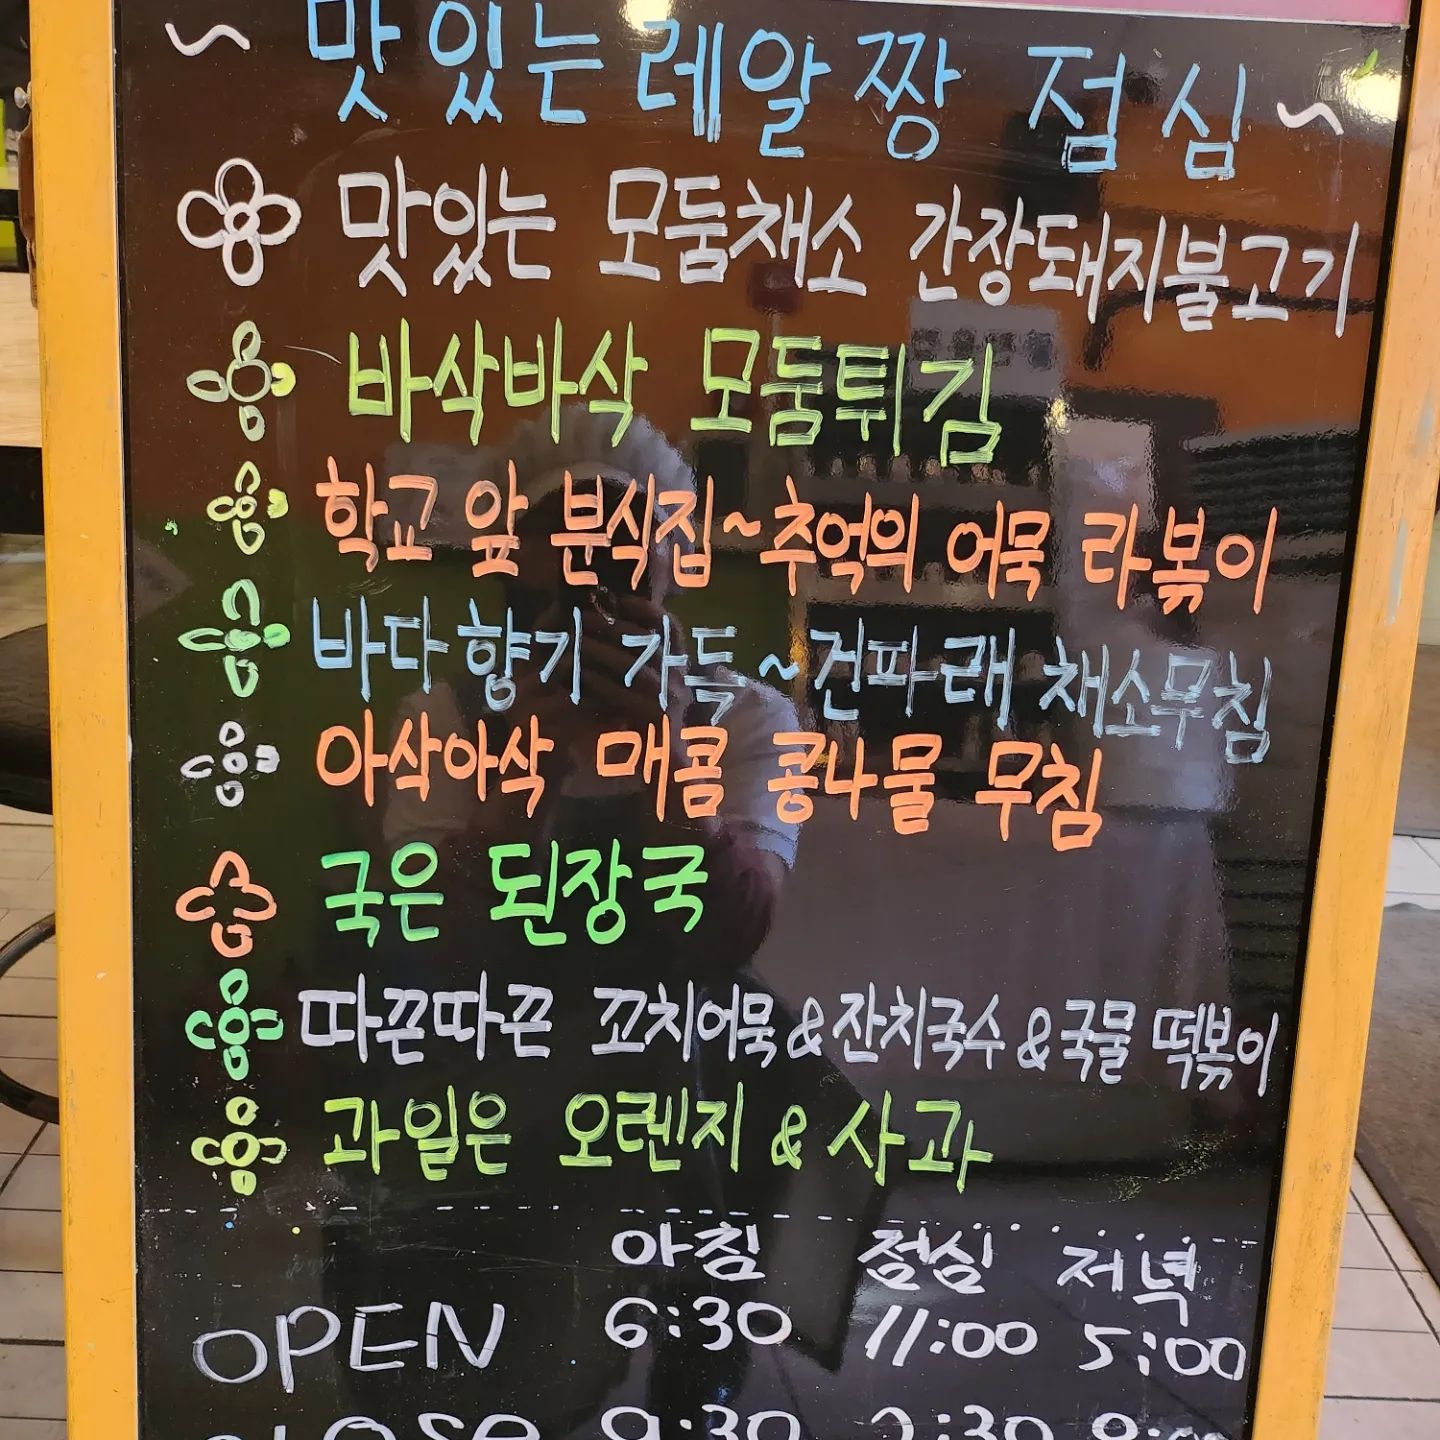 ~ 맛있는 레알 짱 점심 ~
맛있는 모둠채소 간장돼지불고기
바삭바삭 모둠튀김
학교 앞 분식집~추억의 어묵 라볶이
바다 향기 가득~건파래 채소무침
아삭아삭 매콤 콩나물 무침
국은 된장국
따끈따끈 꼬치어묵 & 잔치국수 & 국물 떡볶이
과일은 오렌지 & 사과
아침 점심 저녁
OPEN 6:30 11:00 5:00